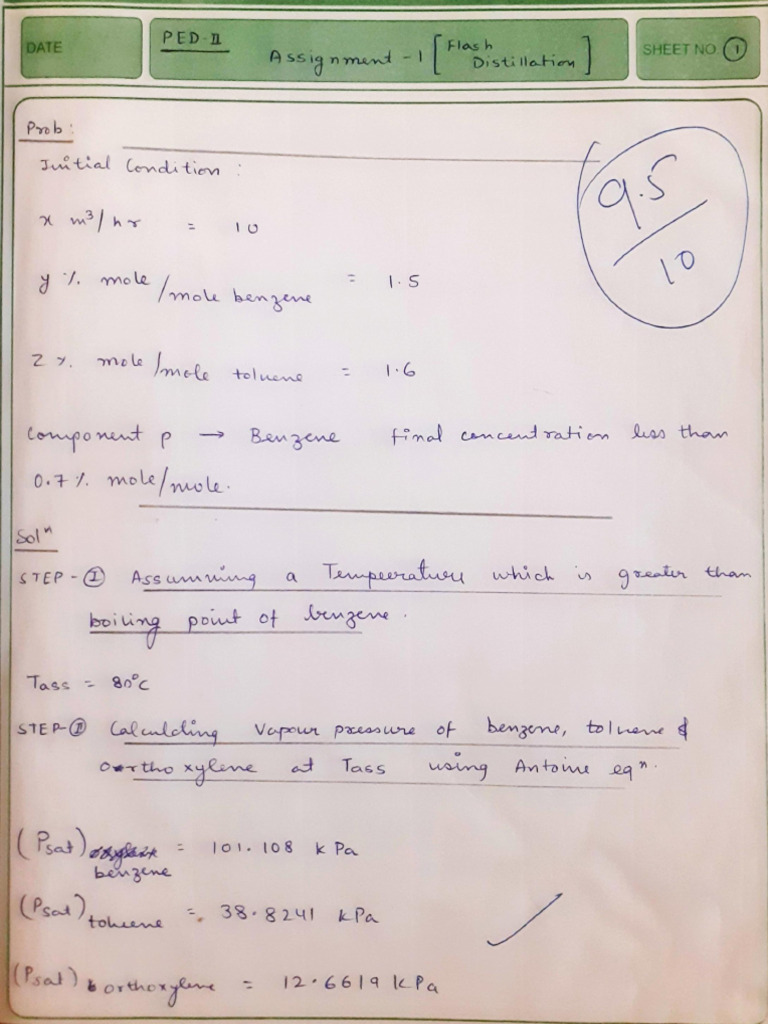 DATE
PED-II
Assignment - 1 [Flash Distillation]
SHEET NO. 1
Prob:
Initial Condition :
9.5/10
x m³/hr = 10
y % mole/mole benzene = 1.5
z % mole/mole toluene = 1.6
Component p → Benzene final concentration less than
0.7 % mole/mole.
Solⁿ
STEP - I Assumming a Tempeerature which is greater than
boiling point of benzene.
Tass = 80°C
STEP - II Calculating Vapour pressure of benzene, toluene &
ortho xylene at Tass using Antoine eqⁿ.
(Psat) benzene = 101.108 kPa
(Psat) toluene = 38.8241 kPa
(Psat) orthoxylene = 12.6619 kPa